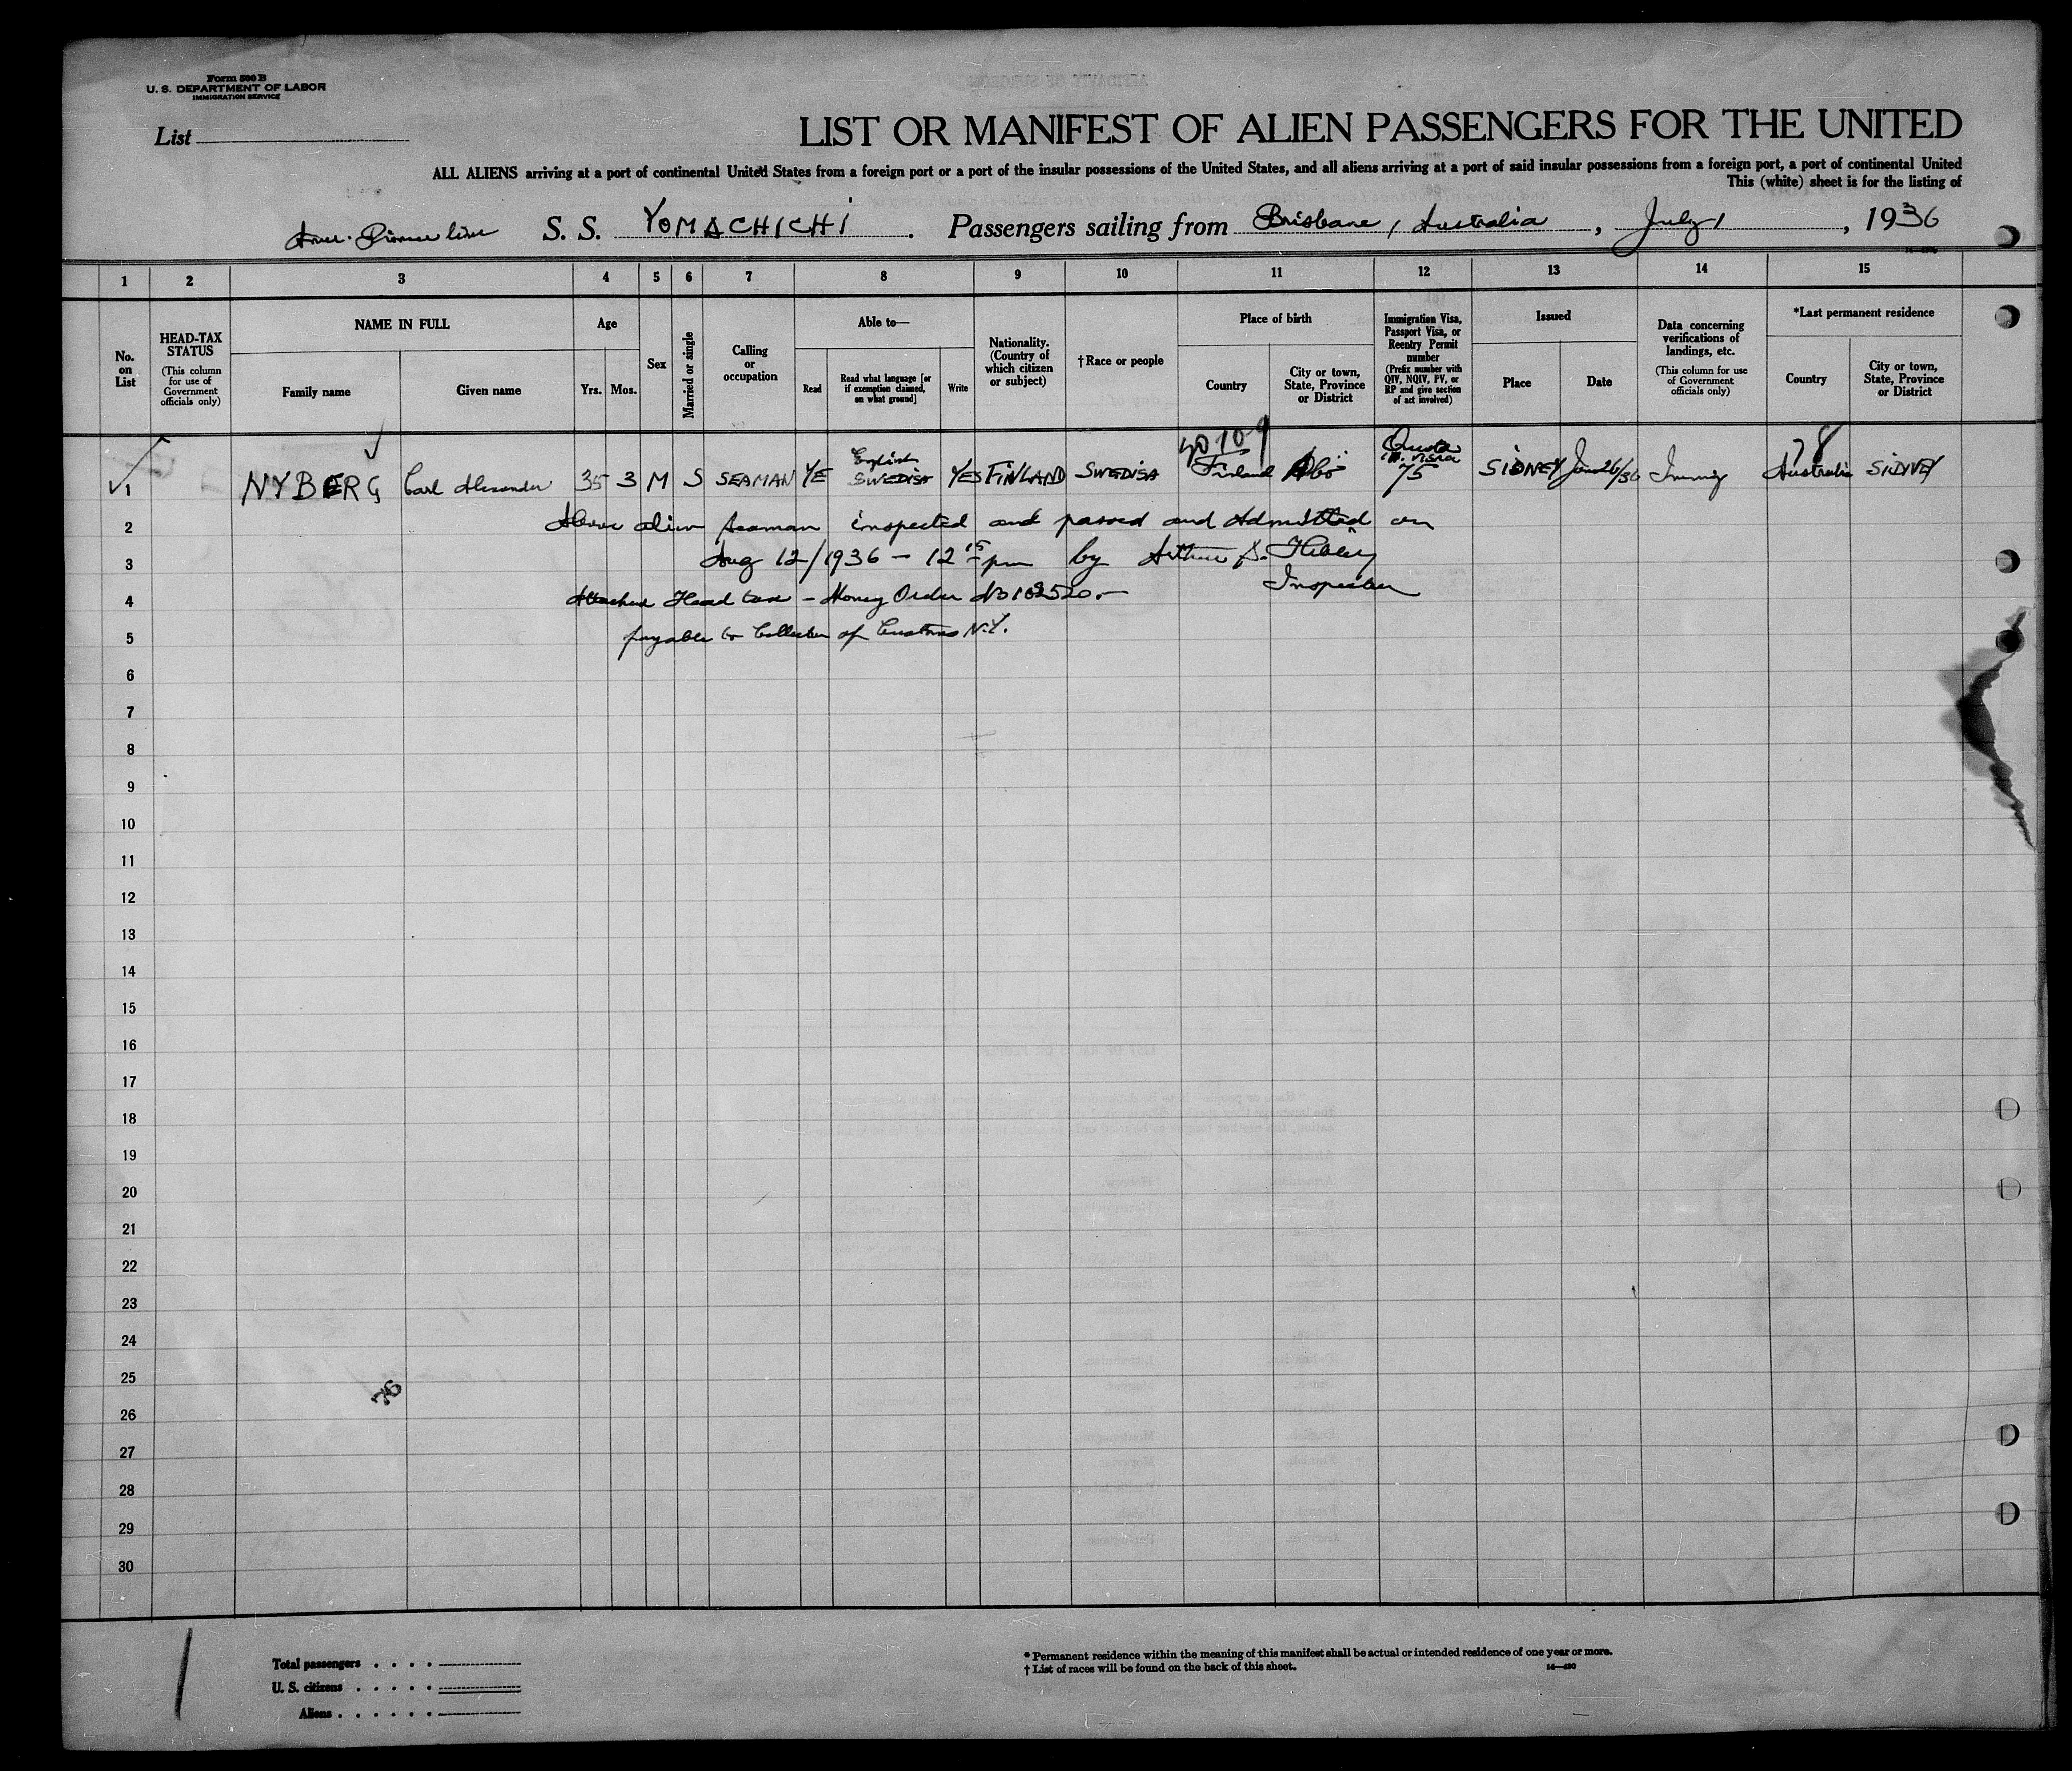 Form 500 B
U. S. DEPARTMENT OF LABOR
IMMIGRATION SERVICE
List
LIST OR MANIFEST OF ALIEN PASSENGERS FOR THE UNITED
ALL ALIENS arriving at a port of continental United States from a foreign port or a port of the insular possessions of the United States, and all aliens arriving at a port of said insular possessions from a foreign port, a port of continental United
This (white) sheet is for the listing of
Amer. Pioneer line S. S. YOMACHICHI . Passengers sailing from Brisbane, Australia, July 1, 1936
1 2 3 4 5 6 7 8 9 10 11 12 13 14 15
No. on List
HEAD-TAX STATUS
(This column for use of Government officials only)
NAME IN FULL
Family name
Given name
Age
Yrs. Mos.
Sex
Married or single
Calling or occupation
Able to—
Read
Read what language [or if exemption claimed, on what ground]
Write
Nationality. (Country of which citizen or subject)
† Race or people
Place of birth
Country
City or town, State, Province or District
Immigration Visa, Passport Visa, or Reentry Permit number
(Prefix number with QIV, NQIV, PV, or RP and give section of act involved)
Issued
Place
Date
Data concerning verifications of landings, etc.
(This column for use of Government officials only)
*Last permanent residence
Country
City or town, State, Province or District
40 10 9 78
English Quota
1 NYBERG Carl Alexander 35 3 M S SEAMAN YE SWEDISH YES FINLAND SWEDISH Finland Abö 75 SIDNEY Jan 26/36 Immig Australia SIDNEY
2 Above alien seaman inspected and passed and admitted on
3 Aug 12/1936 - 12 15 pm by Arthur S.
Inspector
4 Attached Head tax - Money Order No 102520.-
5 payable to Collector of Customs N.Y.
6
7
8
9
10
11
12
13
14
15
16
17
18
19
20
21
22
23
24
25
76
26
27
28
29
30
1
Total passengers
U. S. citizens
Aliens
* Permanent residence within the meaning of this manifest shall be actual or intended residence of one year or more.
† List of races will be found on the back of this sheet.
14—480